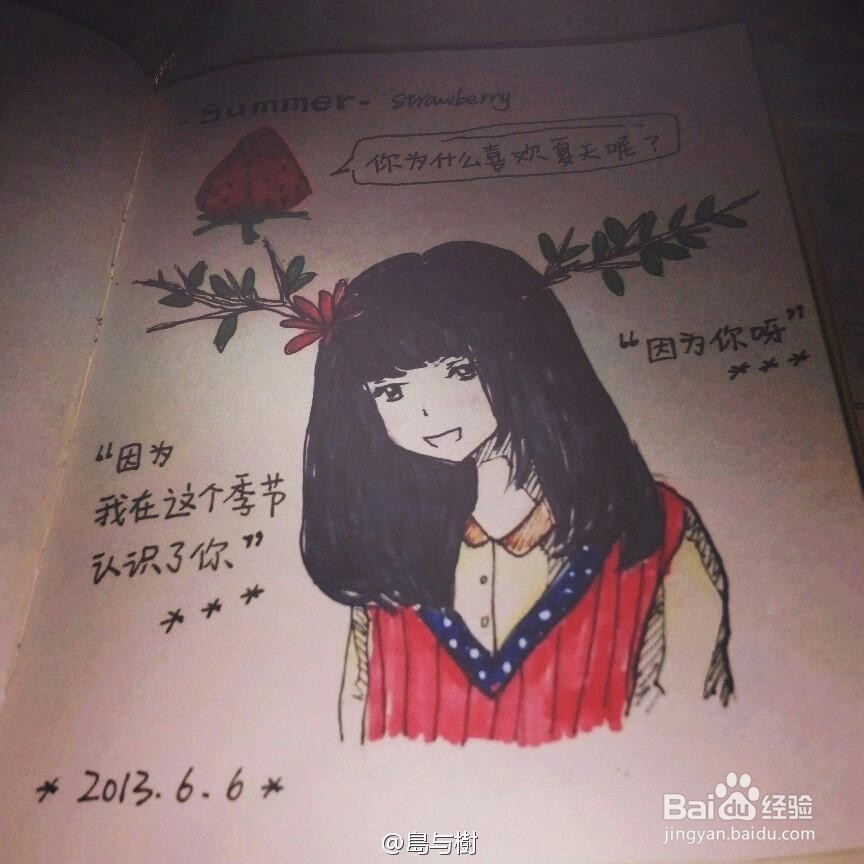 summer. strawberry
你为什么喜欢夏天呢？
“因为你呀”
***
“因为
我在这个季节
认识了你”
***
* 2013.6.6 *
Baidu经验
jingyan.baidu.com
@島与樹